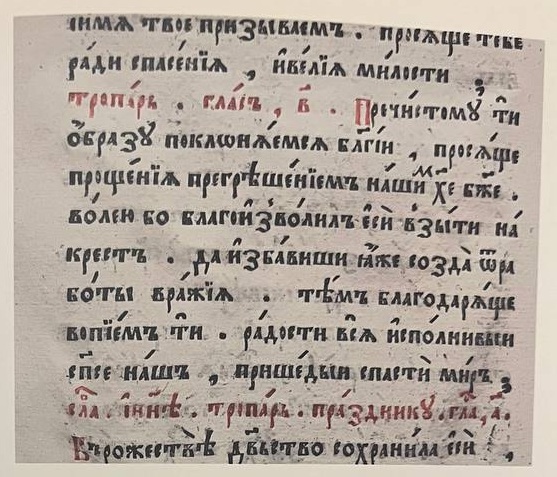 и҆имѧ твое призываемъ . просѧще тебе
ра́ди спасе́нїѧ , и҆ве́лїѧ ми́лости
тропа́рь . гла́съ , в҃ . Пречи́стомꙋ ти
ѻ҆́бразꙋ покланѧ́емсѧ бл҃гі́и , просѧ́ще
проще́нїѧ прегрѣше́нїемъ на́ши хе҃ бж҃е .
во́лею бо благои҆зво́лилъ е҆сѝ взы́ти на́
крестъ . да и҆зба́виши ꙗ҆́же созда̀ ѿра
бо́ты вра́жїѧ . тѣ́мъ благодарѧ́ще
вопїе́мъ ти . ра́дости всѧ̀ и҆спо́лнивыи
сп҃се на́шъ , прише́дыи спастѝ ми́ръ
сла . и҆ нн҃ѣ . тропа́рь . пра́зднику . гла , а҃ .
Върожествѣ̀ дв҃ьство сохрани́ла е҆сѝ ,